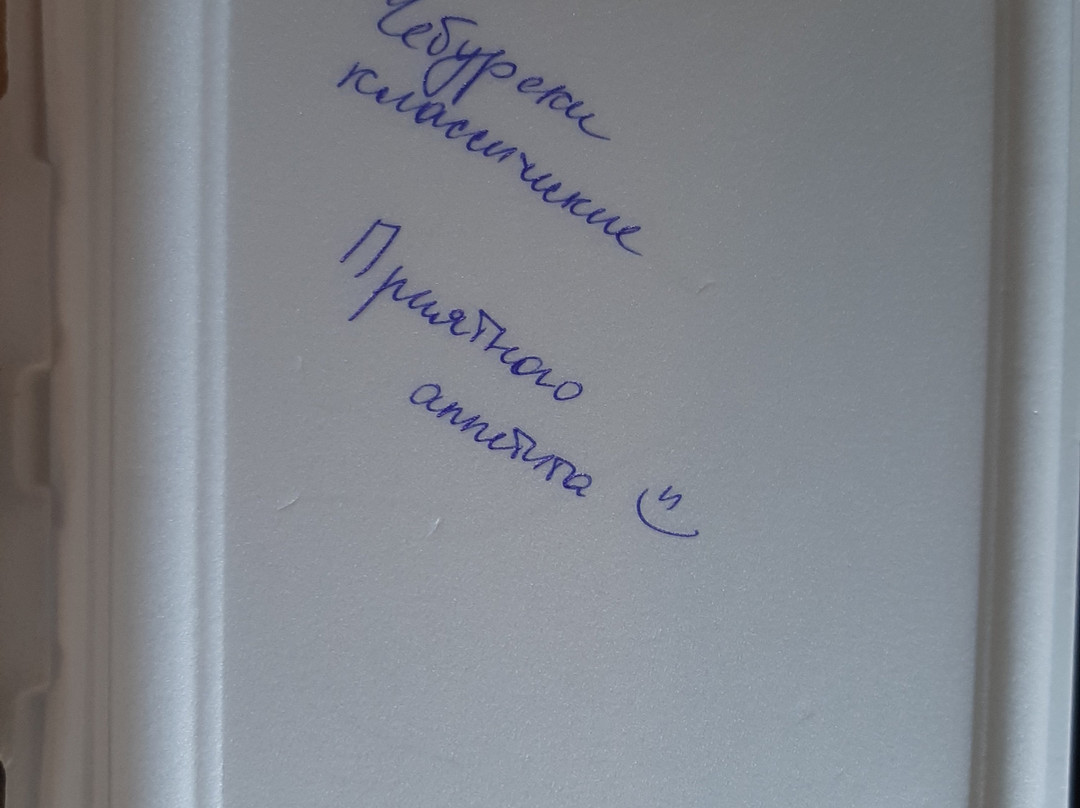 Чебуреки
классичикие
Приятного
аппетита